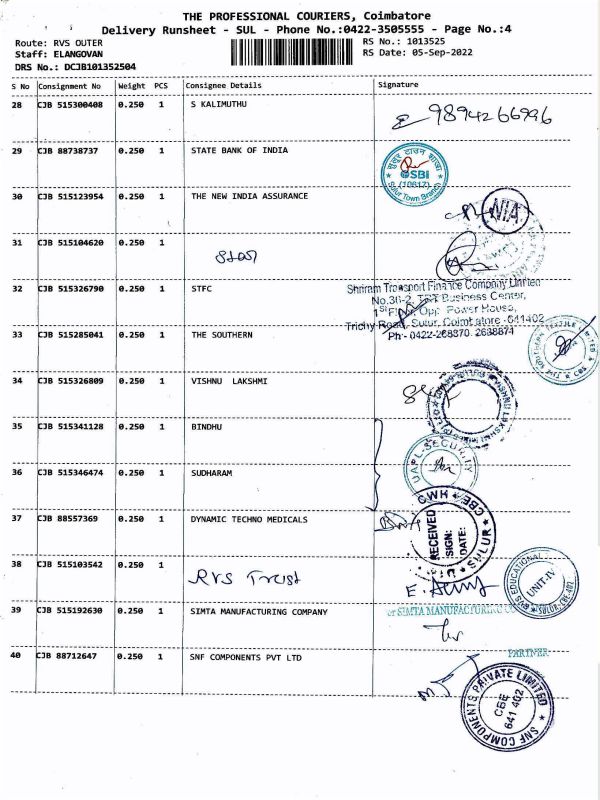 THE PROFESSIONAL COURIERS, Coimbatore
Delivery Runsheet - SUL - Phone No.:0422-3505555 - Page No.:4
Route: RVS OUTER RS No.: 1013525
Staff: ELANGOVAN RS Date: 05-Sep-2022
DRS No.: DCJB101352504
S No Consignment No Weight PCS Consignee Details Signature
28 CJB 515300408 0.250 1 S KALIMUTHU
9894266996
29 CJB 88738737 0.250 1 STATE BANK OF INDIA
सुलूर टाउन शाखा
SBI
(10617)
Sulur Town Branch
30 CJB 515123954 0.250 1 THE NEW INDIA ASSURANCE
NIA
31 CJB 515104620 0.250 1
32 CJB 515326790 0.250 1 STFC
Shriram Transport Finance Company Limited
No.36-2, TBT Business Center,
1st Floor, Opp. Power House,
Trichy Road, Sulur, Coimbatore - 641402
33 CJB 515285041 0.250 1 THE SOUTHERN
34 CJB 515326809 0.250 1 VISHNU LAKSHMI
35 CJB 515341128 0.250 1 BINDHU
UAPL-SECURITY
36 CJB 515346474 0.250 1 SUDHARAM
37 CJB 88557369 0.250 1 DYNAMIC TECHNO MEDICALS
RECEIVED
SIGN:
DATE:
SULUR
38 CJB 515103542 0.250 1
RVS Trust
RVS EDUCATIONAL
UNIT-IV
SULUR, CBE-402
39 CJB 515192630 0.250 1 SIMTA MANUFACTURING COMPANY
SIMTA MANUFACTURING
PARTNER
40 CJB 88712647 0.250 1 SNF COMPONENTS PVT LTD
SNF COMPONENTS PRIVATE LIMITED
CBE
641 402